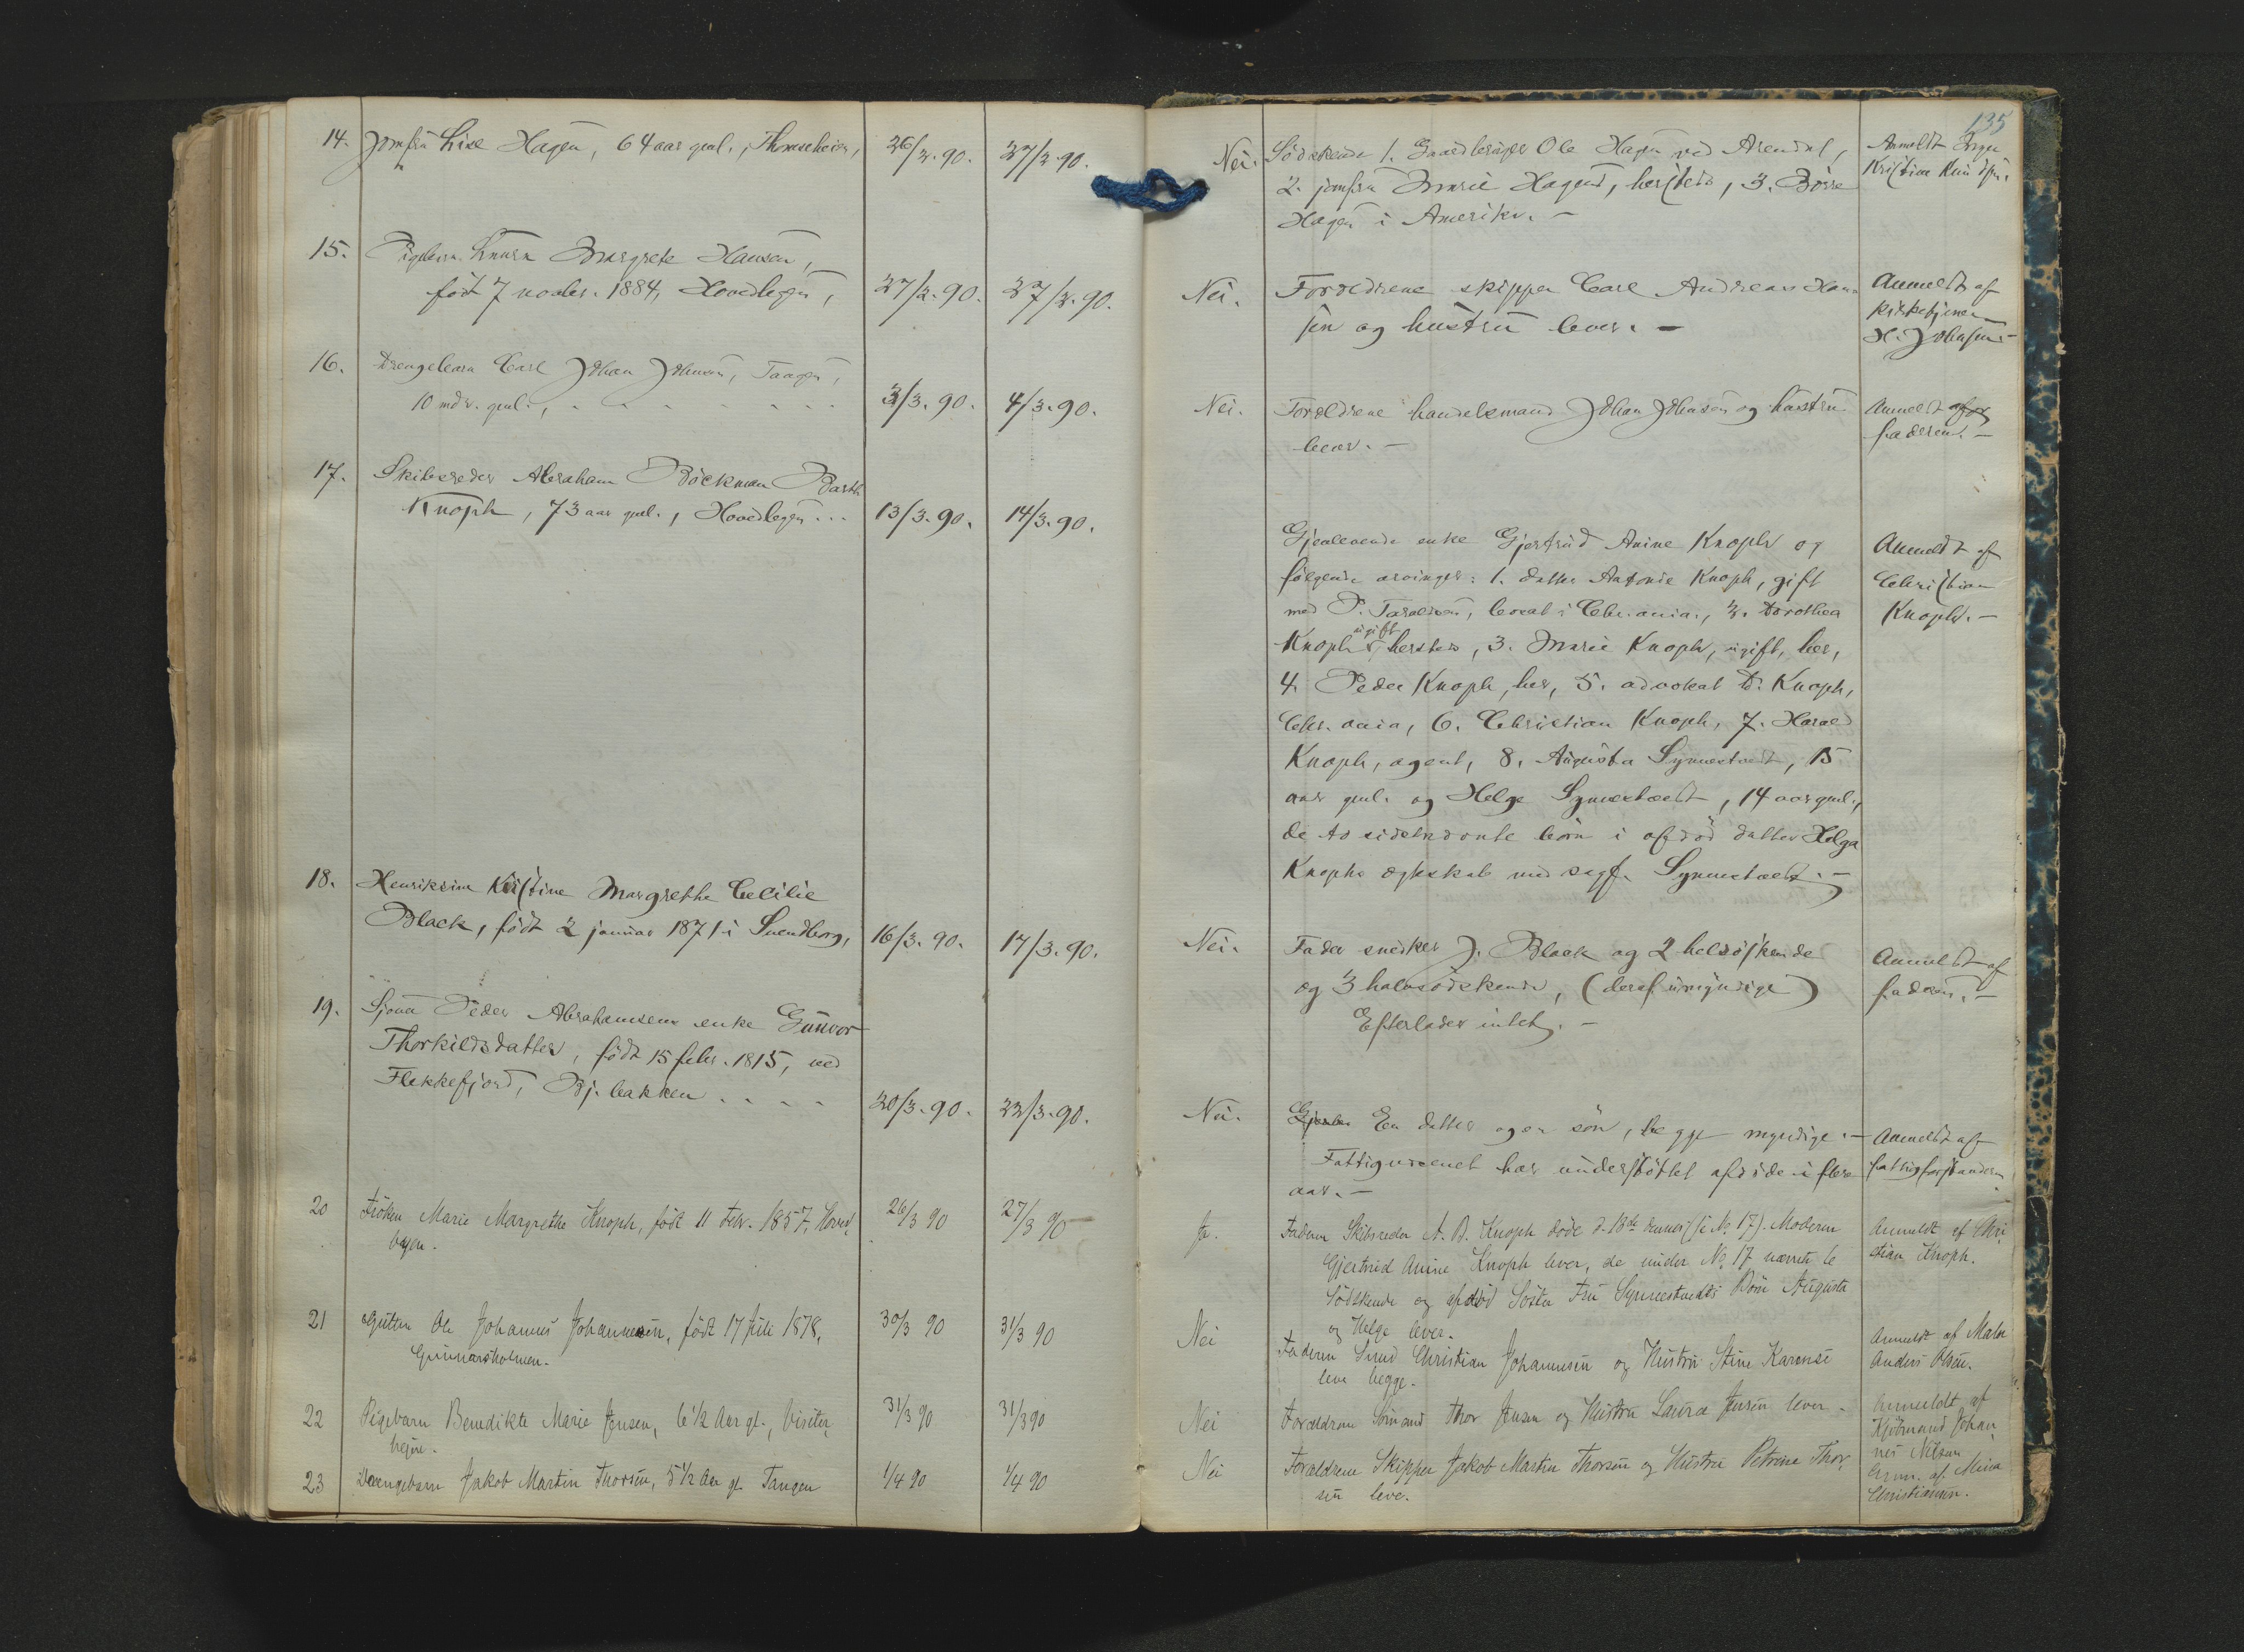 135
14. Jomfru Lise Hagen, 64 aar gml., 26/2.90. 27/2.90.
Nei. Södskende 1. Gaardbruger Ole Hagen ved Arendal,
2. jomfru Marie Hagen, hersteds, 3. Börre
Hagen i Amerika. –
Anmeldt
Kristine
15. Pigebarn Laura Margrete Hansen,
födt 7 novbr. 1884, Hovedbyen, 27/2.90. 27/2.90.
Nei. Forældrene skipper Carl Andreas Han-
sen og hustru lever. –
Anmeldt af
kirketjener
H. Johnsen –
16. Drengebarn Carl Johan Johnsen, Tangen,
10 mdr. gml., 3/3.90. 4/3.90.
Nei. Forældrene handelsmand Johan Johnsen og hustru
lever. –
Anmeldt af
faderen. –
17. Skibsreder Abraham Böckman Barth
Knoph, 73 aar gml., Hovedbyen... 13/3.90. 14/3.90.
Gjenlevende enke Gjertrud Anine Knoph og
følgende arvinger: 1. datter Antonie Knoph, gift
med P. Taraldsen, bosat i Chr.ania., 2. Dorothea
Knoph ugift, hersteds, 3. Marie Knoph, ugift, her,
4. Peder Knoph, her, 5. advokat D. Knoph,
Chr.ania, 6. Christian Knoph, 7. Harald
Knoph, agent, 8. Augusta Synnestvedt, 15
aar gml. og Helge Synnestvedt, 14 aar gml.,
de to sidstnævnte börn i afdöd datter Helga
Knophs ægteskab med sagf. Synnestvedt. –
Anmeldt af
Christian
Knoph. –
18. Henriksine Kristine Margrethe Cecilie
Black, födt 2 januar 1871 i Svendborg, 16/3.90. 17/3.90.
Nei. Fader snedker J. Black og 2 helsöskende
og 3 halvsödskende, (deraf umyndige)
Efterlader intet. –
Anmeldt af
faderen. –
19. Sjömd Peder Abrahamsens enke Gunvor
Thorkildsdatter, födt 15 febr. 1815, ved
Flekkefjord, Bj.bakken 20/3.90. 22/3.90.
Nei. En datter og en sön, begge myndige. –
Fattigvæsenet har understöttet afdöde i flere
aar. –
Anmeldt af
fattigforstanderen
20 Fröken Marie Margrethe Knoph, født 11 Febr. 1857, Hoved,
byen. 26/3 90 27/3 90
Ja. Faderen Skibsreder A. B. Knoph døde d. 13de dennes (se No. 17). Moderen
Gjertrud Anine Knoph lever, de under No. 17 nævnte 6
Södskende og afdöd Söster Fru Synnestvedts Börn Augusta
og Helge lever.
Anmeldt af Chri
stian Knoph.
21 Gutten Ole Johannes Johannesen, født 17 Juli 1878,
Gunnarsholmen. 30/3 90 31/3 90
Nei Faderen Smed Christian Johannesen og Hustru Stine Karense
leve begge.
Anmeldt af Maler
Anders Olsen.
22 Pigebarn Benedikte Marie Jensen, 6 1/2 Aar gl., Visiter,
31/3 90 31/3 90
Nei Forældrene Sömand Thor Jensen og Hustru Laura Jensen lever.
Anmeldt af
Kjöbmand Johan,
nes Nilsen
23 Drengebarn Jakob Martin Thorsen, 5 1/2 Aar gl. Tangen 1/4 90 1/4 90
Nei Forældrene Skipper Jakob Martin Thorsen og Hustru Petrine Thor,
sen leve.
Anm. af Mina
Christiansen.